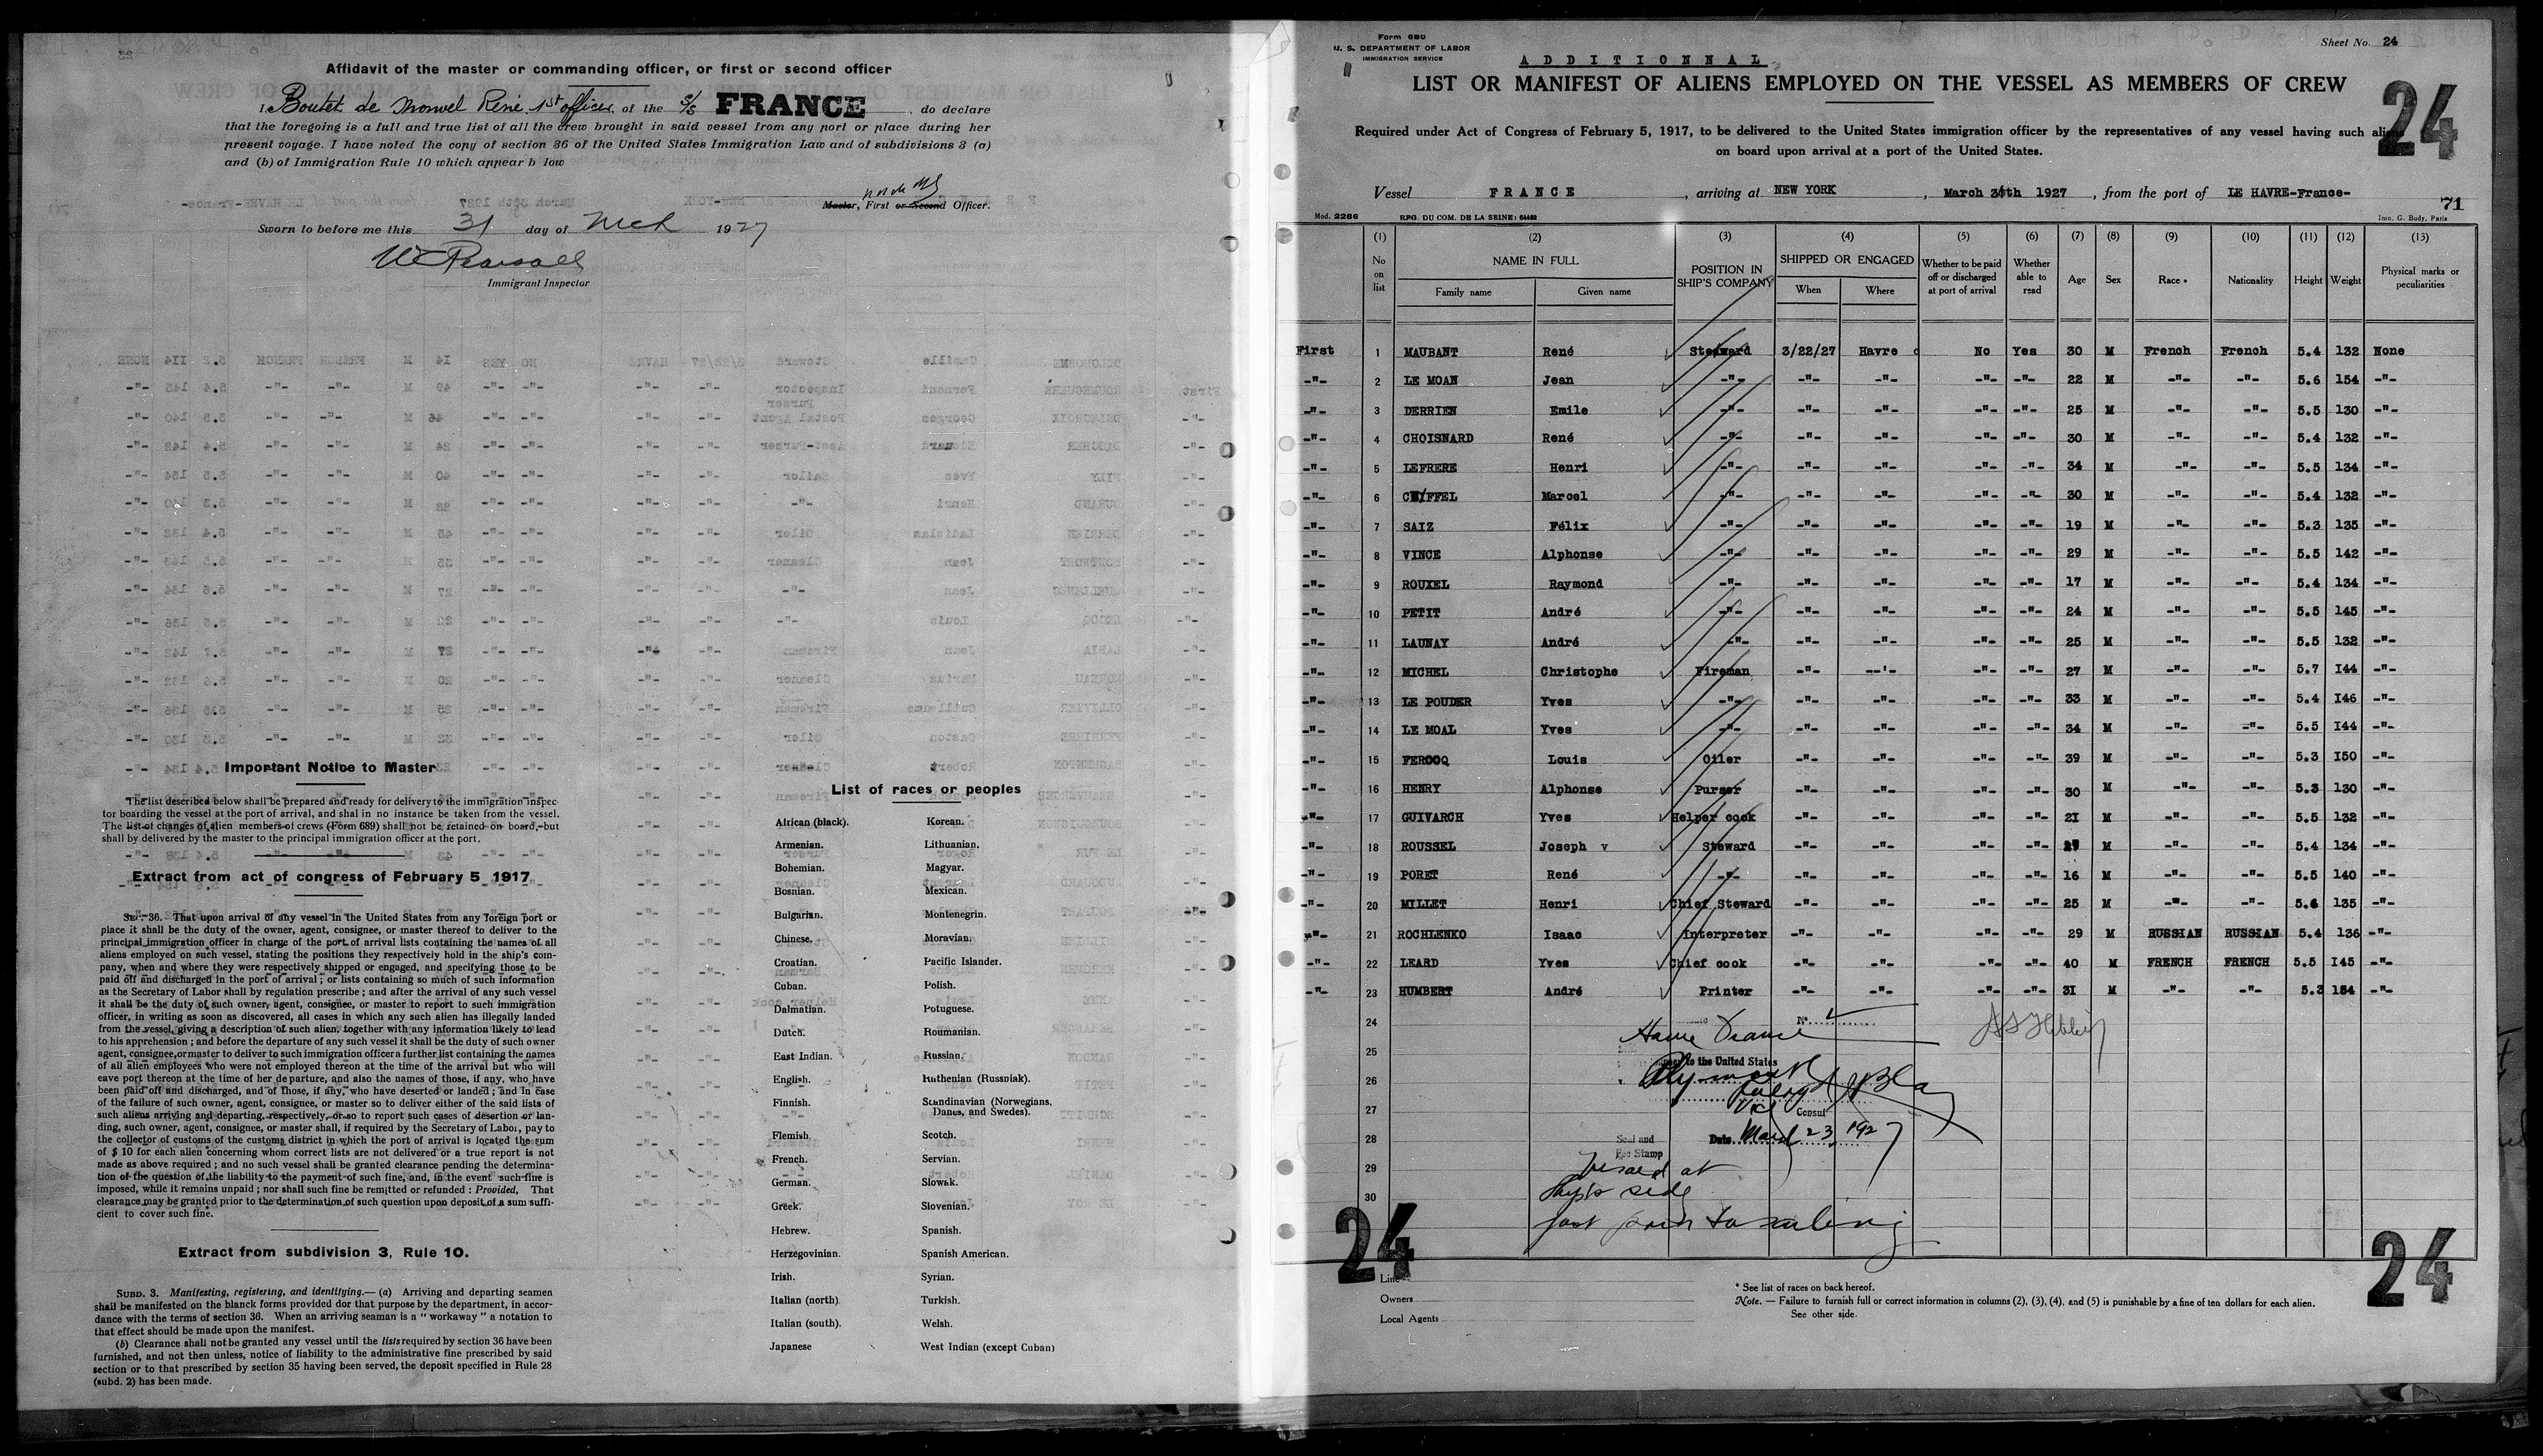 Affidavit of the master or commanding officer, or first or second officer
I Boutet de Monvel René 1st officer of the S/S FRANCE, do declare
that the foregoing is a full and true list of all the crew brought in said vessel from any port or place during her
present voyage. I have noted the copy of section 36 of the United States Immigration Law and of subdivisions 3 (a)
and (b) of Immigration Rule 10 which appear b low
Master, First or Second Officer.
Sworn to before me this 31 day of Mch 1927
Immigrant Inspector
Important Notice to Master
The list described below shall be prepared and ready for delivery to the immigration inspec-
tor boarding the vessel at the port of arrival, and shal in no instance be taken from the vessel.
The list of changes of alien members of crews (Form 689) shall not be retained on board, but
shall by delivered by the master to the principal immigration officer at the port.
Extract from act of congress of February 5 1917
SEC. 36. That upon arrival of any vessel in the United States from any foreign port or
place it shall be the duty of the owner, agent, consignee, or master thereof to deliver to the
principal immigration officer in charge of the port of arrival lists containing the names of all
aliens employed on such vessel, stating the positions they respectively hold in the ship's com-
pany, when and where they were respectively shipped or engaged, and specifying those to be
paid off and discharged in the port of arrival; or lists containing so much of such information
as the Secretary of Labor shall by regulation prescribe; and after the arrival of any such vessel
it shall be the duty of such owner, agent, consignee, or master to report to such immigration
officer, in writing as soon as discovered, all cases in which any such alien has illegally landed
from the vessel, giving a description of such alien, together with any information likely to lead
to his apprehension; and before the departure of any such vessel it shall be the duty of such owner
agent, consignee, or master to deliver to such immigration officer a further list containing the names
of all alien employees who were not employed thereon at the time of the arrival but who will
eave port thereon at the time of her departure, and also the names of those, if any, who have
been paid off and discharged, and of those, if any, who have deserted or landed; and in case
of the failure of such owner, agent, consignee, or master so to deliver either of the said lists of
such aliens arriving and departing, respectively, or so to report such cases of desertion or lan-
ding, such owner, agent, consignee, or master shall, if required by the Secretary of Labor, pay to
the collector of customs of the customs district in which the port of arrival is located the sum
of $ 10 for each alien concerning whom correct lists are not delivered or a true report is not
made as above required; and no such vessel shall be granted clearance pending the determina-
tion of the question of the liability to the payment of such fine, and, in the event such fine is
imposed, while it remains unpaid; nor shall such fine be remitted or refunded: Provided, That
clearance may be granted prior to the determination of such question upon deposit of a sum suffi-
cient to cover such fine.
Extract from subdivision 3, Rule 10.
SUBD. 3. Manifesting, registering, and identifying.— (a) Arriving and departing seamen
shall be manifested on the blanck forms provided dor that purpose by the department, in accor-
dance with the terms of section 36. When an arriving seaman is a "workaway" a notation to
that effect should be made upon the manifest.
(b) Clearance shall not be granted any vessel until the lists required by section 36 have been
furnished, and not then unless, notice of liability to the administrative fine prescribed by said
section or to that prescribed by section 35 having been served, the deposit specified in Rule 28
(subd. 2) has been made.
List of races or peoples
African (black). Korean.
Armenian. Lithuanian.
Bohemian. Magyar.
Bosnian. Mexican.
Bulgarian. Montenegrin.
Chinese. Moravian.
Croatian. Pacific Islander.
Cuban. Polish.
Dalmatian. Potuguese.
Dutch. Roumanian.
East Indian. Russian.
English. Ruthenian (Russniak).
Finnish. Scandinavian (Norwegians,
Danes, and Swedes).
Flemish. Scotch.
French. Servian.
German. Slowak.
Greek. Slovenian.
Hebrew. Spanish.
Herzegovinian. Spanish American.
Irish. Syrian.
Italian (north). Turkish.
Italian (south). Welsh.
Japanese West Indian (except Cuban)
Form 680
U. S. DEPARTMENT OF LABOR
IMMIGRATION SERVICE
Sheet No. 24
ADDITIONNAL
LIST OR MANIFEST OF ALIENS EMPLOYED ON THE VESSEL AS MEMBERS OF CREW
24
Required under Act of Congress of February 5, 1917, to be delivered to the United States immigration officer by the representatives of any vessel having such aliens
on board upon arrival at a port of the United States.
Vessel FRANCE, arriving at NEW YORK, March 30th 1927, from the port of LE HAVRE-France-
71
Mod. 2286 REG. DU COM. DE LA SEINE: 64482 Imn. G. Budy, Paris
(1) (2) (3) (4) (5) (6) (7) (8) (9) (10) (11) (12) (13)
No on list NAME IN FULL Family name Given name POSITION IN SHIP'S COMPANY SHIPPED OR ENGAGED When Where Whether to be paid off or discharged at port of arrival Whether able to read Age Sex Race * Nationality Height Weight Physical marks or peculiarities
First 1 MAUBANT René Steward 3/22/27 Havre No Yes 30 M French French 5.4 132 None
-"- 2 LE MOAN Jean -"- -"- -"- -"- -"- 22 M -"- -"- 5.6 154 -"-
-"- 3 DERRIEN Emile -"- -"- -"- -"- -"- 25 M -"- -"- 5.5 130 -"-
-"- 4 CHOISNARD René -"- -"- -"- -"- -"- 30 M -"- -"- 5.4 132 -"-
-"- 5 LEFRERE Henri -"- -"- -"- -"- -"- 34 M -"- -"- 5.5 134 -"-
-"- 6 Marcel -"- -"- -"- -"- -"- 30 M -"- -"- 5.4 132 -"-
-"- 7 SAIZ Félix -"- -"- -"- -"- -"- 19 M -"- -"- 5.3 135 -"-
-"- 8 VINCE Alphonse -"- -"- -"- -"- -"- 29 M -"- -"- 5.5 142 -"-
-"- 9 ROUXEL Raymond -"- -"- -"- -"- -"- 17 M -"- -"- 5.4 134 -"-
-"- 10 PETIT André -"- -"- -"- -"- -"- 24 M -"- -"- 5.5 145 -"-
-"- 11 LAUNAY André -"- -"- -"- -"- -"- 25 M -"- -"- 5.5 132 -"-
-"- 12 MICHEL Christophe Fireman -"- --'- -"- -"- 27 M -"- -"- 5.7 I44 -"-
-"- 13 LE POUDER Yves -"- -"- -"- -"- -"- 33 M -"- -"- 5.4 I46 -"-
-"- 14 LE MOAL Yves -"- -"- -"- -"- -"- 34 M -"- -"- 5.5 I44 -"-
-"- 15 FERCOQ Louis Oiler -"- -"- -"- -"- 39 M -"- -"- 5.3 I50 -"-
-"- 16 HENRY Alphonse Purser -"- -"- -"- -"- 30 M -"- -"- 5.3 130 -"-
-"- 17 GUIVARCH Yves Helper cook -"- -"- -"- -"- 2I M -"- -"- 5.5 132 -"-
-"- 18 ROUSSEL Joseph Steward -"- -"- -"- -"- M -"- -"- 5.4 134 -"-
-"- 19 PORET René -"- -"- -"- -"- -"- 16 M -"- -"- 5.5 140 -"-
-"- 20 MILLET Henri Chief Steward -"- -"- -"- -"- 25 M -"- -"- 5.6 135 -"-
-"- 21 ROCHLENKO Isaac Interpreter -"- -"- -"- -"- 29 M RUSSIAN RUSSIAN 5.4 136 -"-
-"- 22 LEARD Yves Chief cook -"- -"- -"- -"- 40 M FRENCH FRENCH 5.5 I45 -"-
-"- 23 HUMBERT André Printer -"- -"- -"- -"- 3I M -"- -"- 5.3 154 -"-
24 No
Havre France
25
to the United States
26 Plymouth
27 Consul
28 Seal and Fee Stamp Date March 23, 1927
29 Visaed at
30 ship's side
just prior to sailing
24
24
Line
Owners
Local Agents
* See list of races on back hereof.
Note. — Failure to furnish full or correct information in columns (2), (3), (4), and (5) is punishable by a fine of ten dollars for each alien.
See other side.